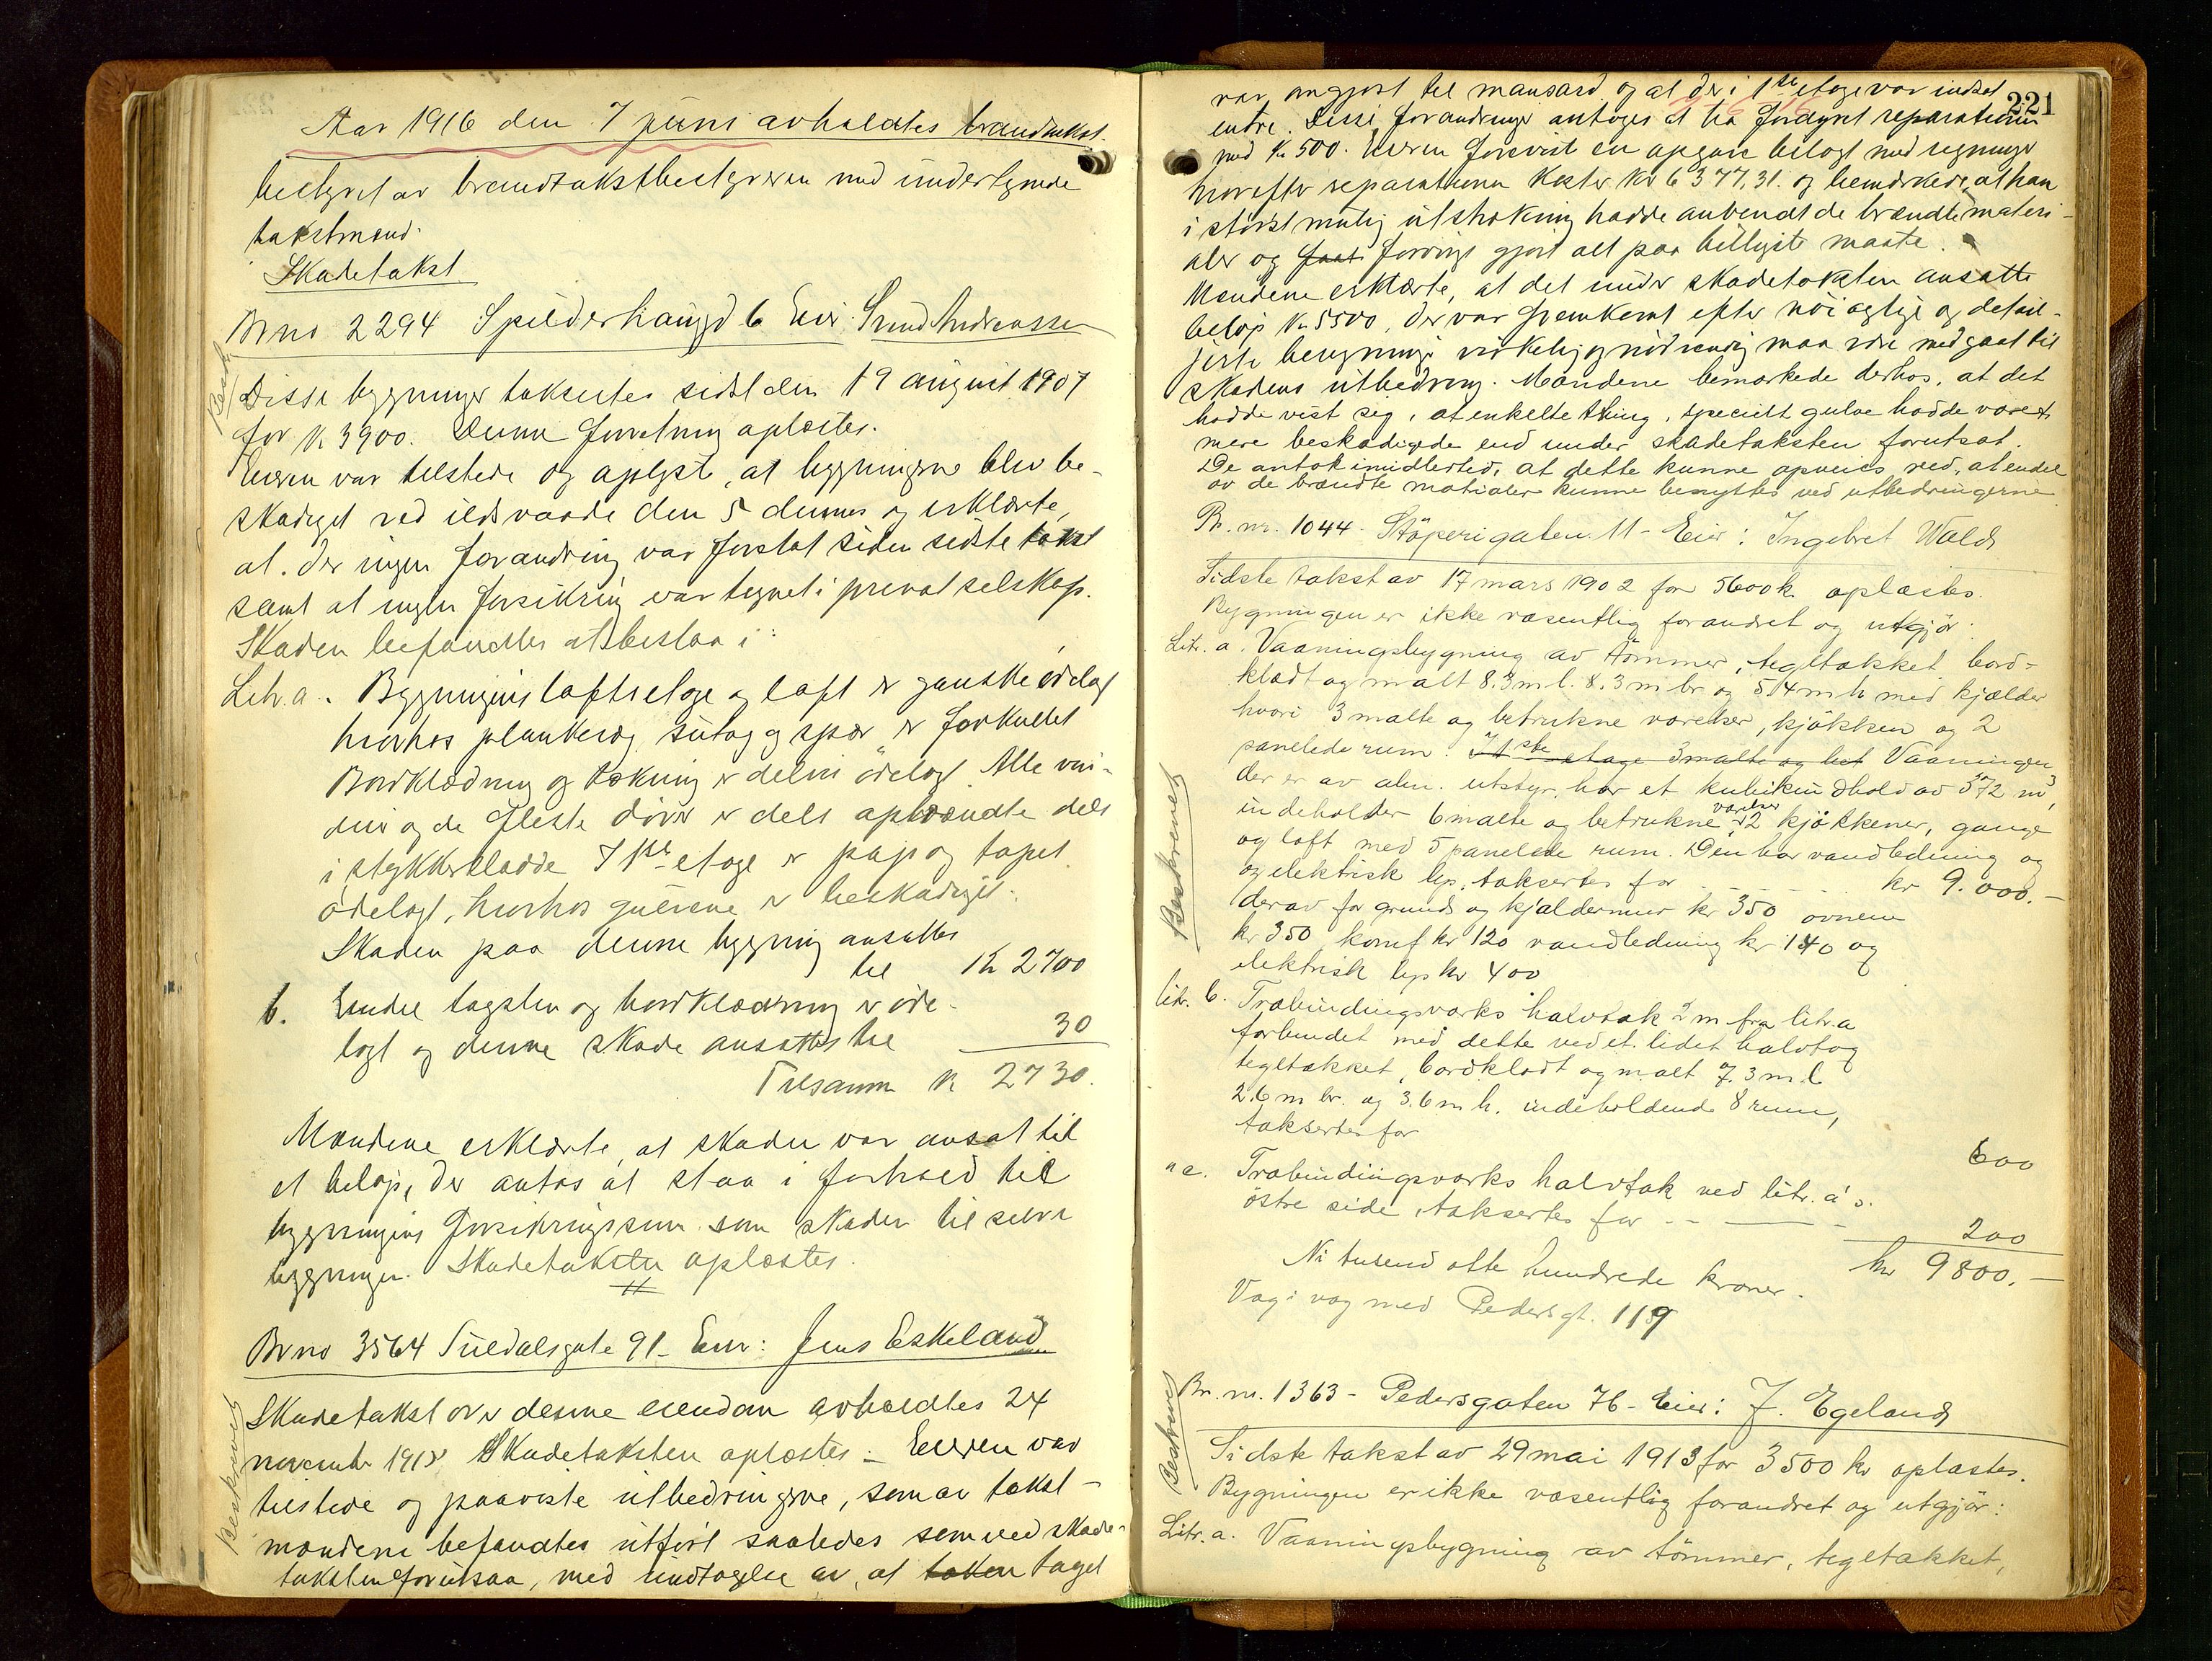 Aar 1916 den 7 juni avholdtes brandtakst
bestyret av brandtakstbestyreren med undertegnede
takstmænd.
Skadetakst
Brno 2294 Spilderhaugd 6 Eier: Svend Andreassen
Beskr
Disse bygninger taksertes sidst den 19 august 1907
for K 3900. Denne forretning oplæstes.
Eieren var tilstede og oplyste, at bygningerne blev be-
skadiget ved ildsvaade den 5 dennes og erklærte,
at der ingen forandring var foretat siden sidste takst
samt at ingen forsikring var tegnet i privat selskap.
Skaden befandtes at bestaa i:
Litr. a. Bygningens loftsetage og loft er ganske ødelagt
hvorhos plankeræk, sutag og spær er forkullet
Bordklædning og tækning er delvis ødelagt. Alle vin-
duer og de fleste dører er dels opbrændte dels
istykkerslaade I 1ste etage er pap og tapet
ødelagt, hvorhos gulvene er beskadiget.
Skaden paa denne bygning ansattes
til K 2700
b. Endel tagsten og bordklædning er øde-
lagt og denne skade ansattes til 30
Tilsamm K 2730.
Mændene erklærte, at skaden var ansat til
et beløp, der antas at staa i forhold til
bygningens forsikringssum som skaden til selve
bygningen. Skadetaksten oplæstes.
Brno 3564 Suldalsgate 91 - Eier: Jens Eskeland
Beskrevet
Skadetakst over denne eiendom avholdtes 24
november 1915 Skadetaksten oplæstes - Eieren var
tilstede og paaviste utbedringerne, som av takst-
mændene befandtes utført saaledes som ved skade-
taksten forutsaa, med undtagelse av, at taken taget
221
var omgjort til mansard og at der i 1ste etage var indsat
entre. Disse forandringer antoges at ha fordyret reparationen
med K 500. Eieren foreviste en opgave belagt med regninger
hvorefter reparationen koster Kr 6377,31. og bemerkede, at han
i størst mulig utstrækning hadde anvendt de brændte materi-
aler og faat forøvrig gjort alt paa billigste maate.
Mændene erklærte, at det under skadetaksten ansatte
beløp K 5500, der var fremkomt efter nøiagtige og detail-
jerte beregninger virkelig og nødvendig maa være medgaat til
skadens utbedring. Mændene bemærkede derhos, at det
hadde vist sig, at enkelte thing, specielt gulve hadde været
mere beskadigede end under skadetaksten forutsat.
De antok imidlertid, at dette kunne opveies ved, at endel
av de brændte matrialer kunne benyttes ved utbedringerne
Br. nr. 1044 - Støperigaten 11 - Eier: Ingebret Wald
Sidste takst av 17 mars 1902 for 5600 k. oplæstes.
Bygningen er ikke væsentlig forandret og utgjør:
Beskrevet
Litr. a. Vaaningsbygning av tømmer, tegltækket, bord-
klædt og malt 8.3 m l. 8.3 m br og 5.4 m h med kjælder
hvori 3 malte og betrukne værelser, kjøkken og 2
panelede rum. I 1ste etage 3 malte og bet Vaaningen
der er av alm. utstyr, har et kubikindhold av 372 m3,
indeholder 6 malte og betrukne værelser, 2 kjøkkener, gange
og loft med 5 panelede rum. Den har vandledning og
og elektrisk lys, taksertes for - - - - kr 9.000.-
derav for grund og kjældermur kr 350 ovnene
kr 350 komf kr 120 vandledning kr 140 og
elektrisk lys kr 400
Litr. b. Træbindingsværks halvtak 2 m fra litr. a
forbundet med dette ved et lidet halvtag
tegltækket, bordklædt og malt 7.3 m l
2.6 m br. og 3.6 m h. indeholdende 8 rum,
taksertes for 600
" c. Træbindingsværks halvtak ved litr. a's.
østre side, taksertes for - - 200
kr 9800.-
Ni tusend otte hundrede kroner.
Væg i væg med Pedersgt. 119
Br. nr. 1363 - Pedersgaten 76 - Eier: J. Egeland
Beskrevet
Sidste takst av 29 mai 1913 for 3500 kr oplæstes.
Bygningen er ikke væsentlig forandret og utgjør:
Litr. a. Vaaningsbygning av tømmer, tegltækket,